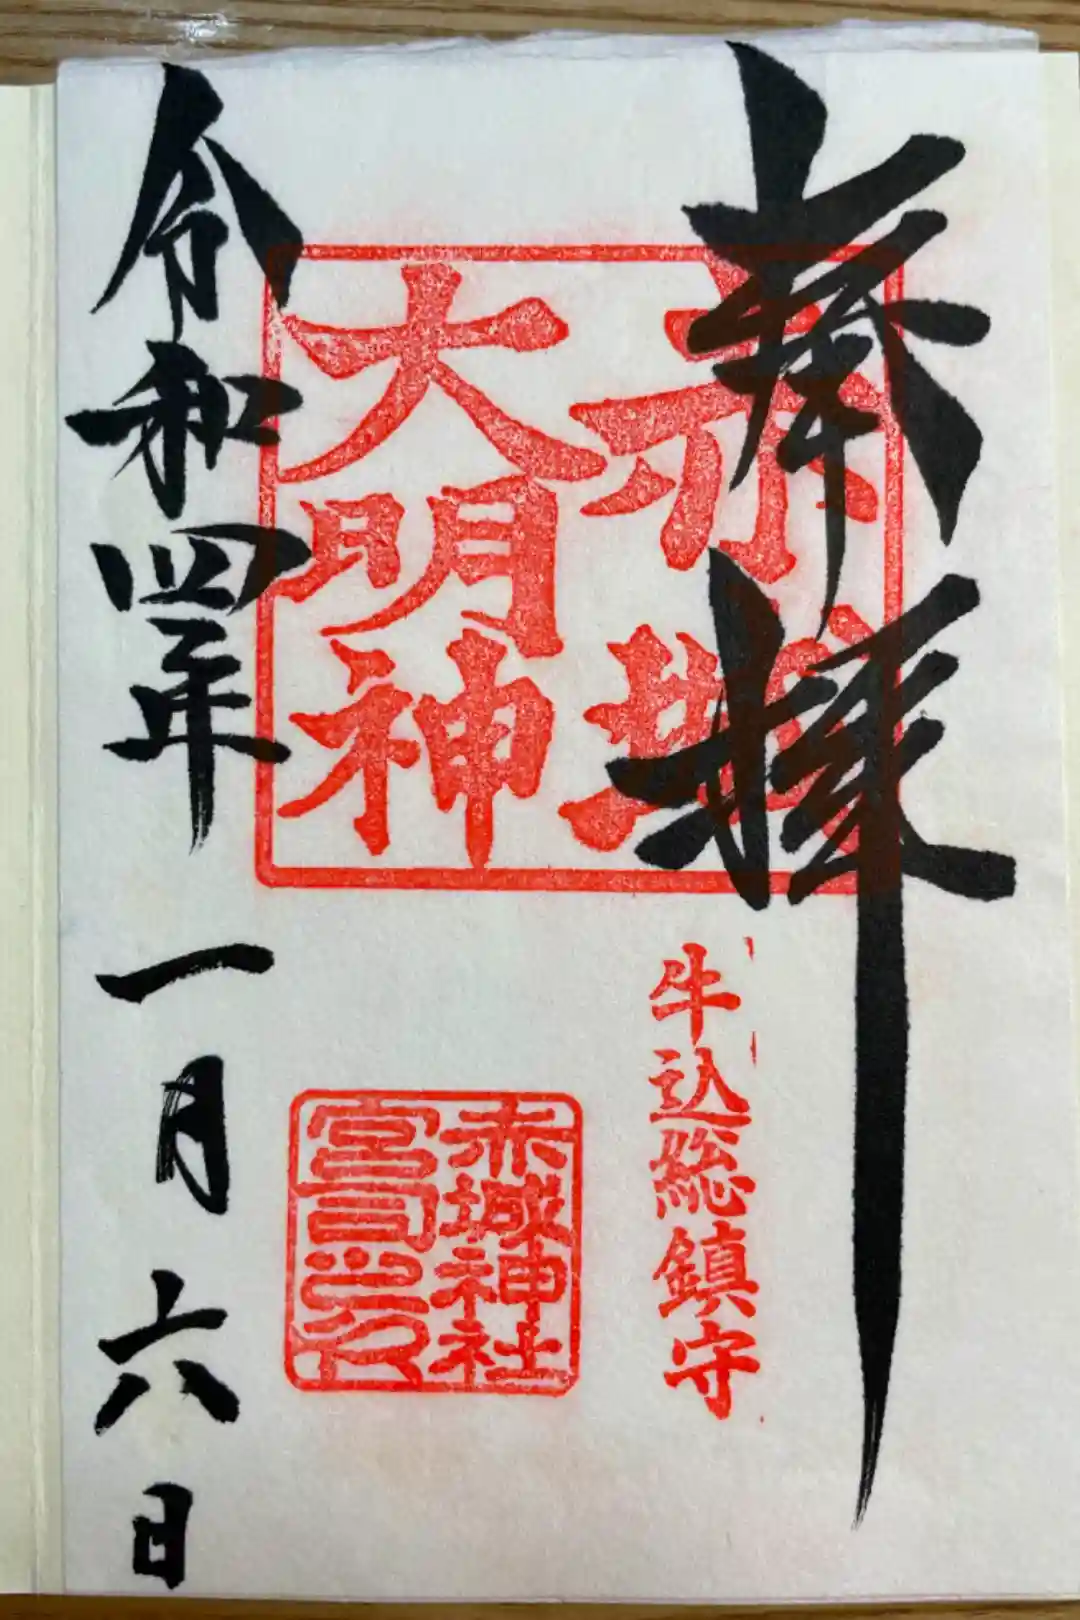 奉拝
赤城
大明神
牛込総鎮守
赤城神社
宮司之印
令和四年一月六日